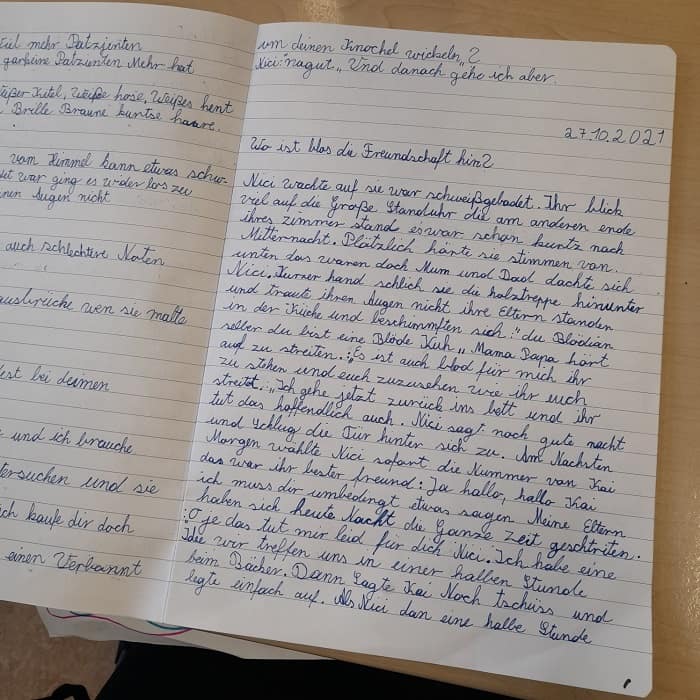 viel mehr Patzjenten
garkeine Patzienten Mehr hat
Weißer Kitel, Weiße hose, Weißes hent
Brille Braune kurtse haare.
vom Himmel kann etwas schw-
war ging es wider los zu
Augen nicht
auch schlechtere Noten
ausbrüche wen sie malte
bei deinen
und ich brauche
und sie
ich kaufe dir doch
einen Verbannt
um deinen Knochel wickeln„?
Nici:"nagut„ Und danach gehe ich aber.
27.10.2021
Wo ist blos die Freundschaft hin?
Nici wachte auf sie war schweißgebadet. Ihr blick
viel auf die Große Standuhr die am anderen ende
ihres zimmer stand es war schon kurtz nach
Mitternacht. Plötzlich hörte sie stimmen von
unten das waren doch Mum und Dad dachte sich
Nici. hand schlich sie die holztreppe hinunter
und traute ihren Augen nicht ihre Eltern standen
in der Küche und beschimmften sich:"du Blödian
selber du bist eine Blöde Kuh„ Mama Papa hört
auf zu streiten.:"Es ist auch blöd für mich ihr
zu stehen und euch zuzusehen wie ihr euch
streitet.:"Ich gehe jetzt zurück ins bett und ihr
tut das hoffendlich auch. Nici sagt noch gute nacht
und schlug die Tür hinter sich zu. Am Nachsten
Morgen wählte Nici sofort die Nummer von Kai
das war ihr bester freund: Ja hallo, hallo Kai
ich muss dir umbedingt etwas sagen Meine Eltern
haben sich heute Nacht die Ganze zeit geschtriten.
:O je das tut mir leid für dich Nici. Ich habe eine
Idee wir treffen uns in einer halben Stunde
beim Bäcker. Dann Sagte Kai Noch tschüss und
legte einfach auf. Als Nici dan eine halbe Stunde